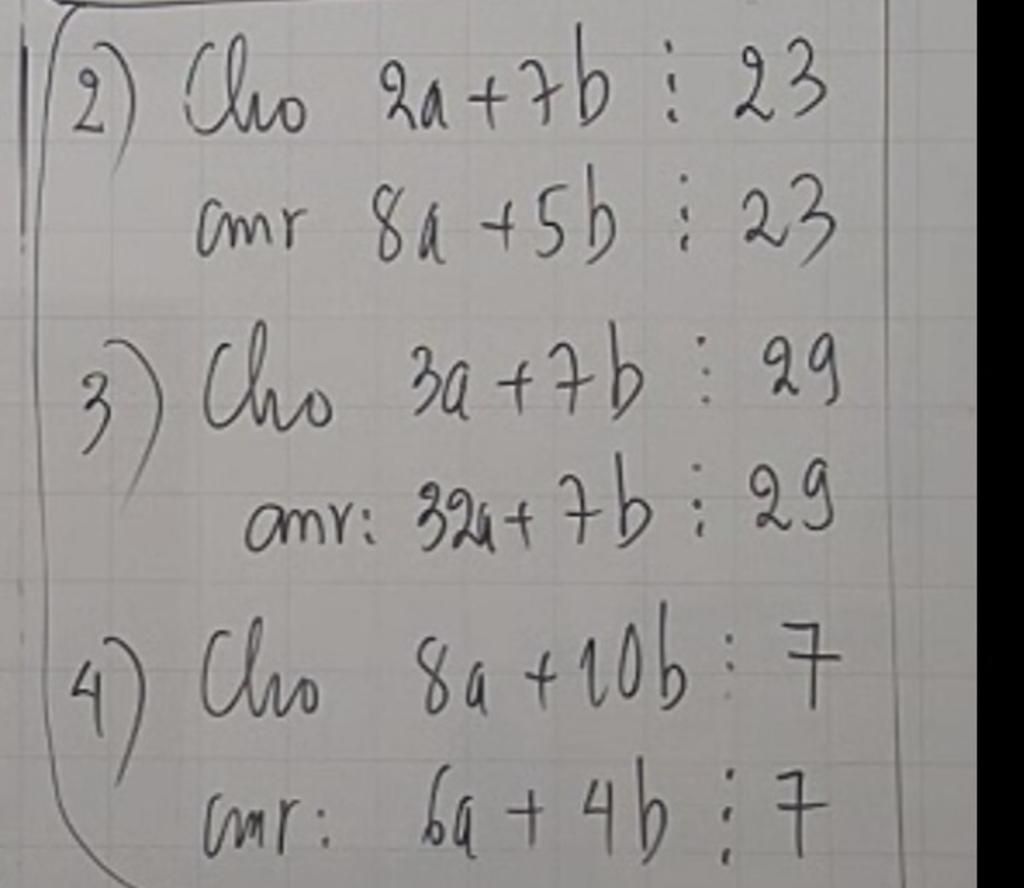 2) Cho 2a + 7b ⋮ 23
cmr 8a + 5b ⋮ 23
3) Cho 3a + 7b ⋮ 29
cmr: 32a + 7b ⋮ 29
4) Cho 8a + 10b ⋮ 7
cmr: 6a + 4b ⋮ 7